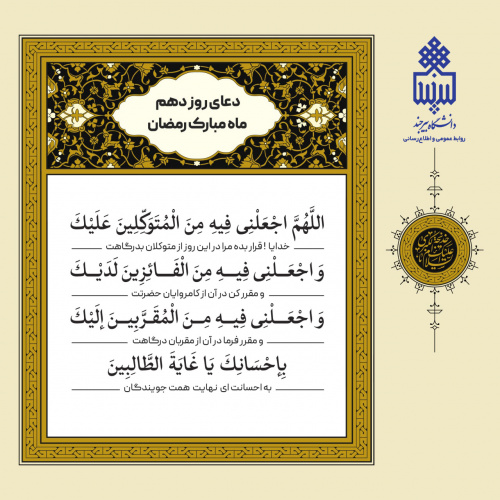 دعای روز دهم
ماه مبارک رمضان
اللَّهُمَّ اجْعَلْنِی فِیهِ مِنَ الْمُتَوَکِّلِینَ عَلَیْكَ
خدایا ! قرار بده مرا در این روز از متوکلان بدرگاهت
وَ اجْعَلْنِی فِیـهِ مِنَ الْفَـائِزِینَ لَدَیْـكَ
و مقرر کن در آن از کامروایان حضرتت
وَ اجْعَـلْنِی فِیـهِ مِـنَ الْمُقَرَّبِیـنَ إِلَیْكَ
و مقرر فرما در آن از مقربان درگاهت
بِإِحْسَانِكَ یَا غَایَةَ الطَّالِبِینَ
به احسانت ای نهایت همت جویندگان
دانشگاه بیرجند
روابط عمومی و اطلاع‌رسانی